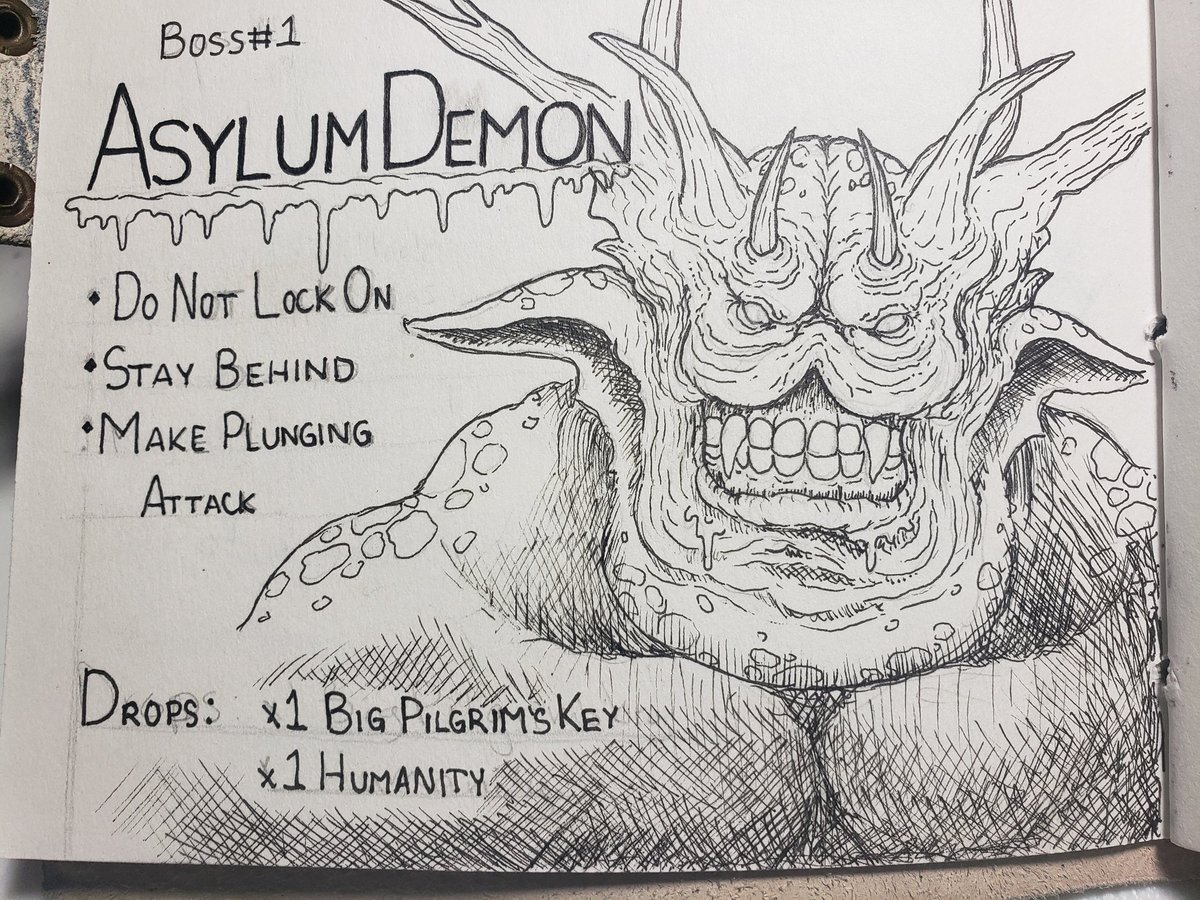 Boss#1
ASYLUM DEMON
• DO NOT LOCK ON
• STAY BEHIND
• MAKE PLUNGING
ATTACK
DROPS: x1 BIG PILGRIM'S KEY
x1 HUMANITY